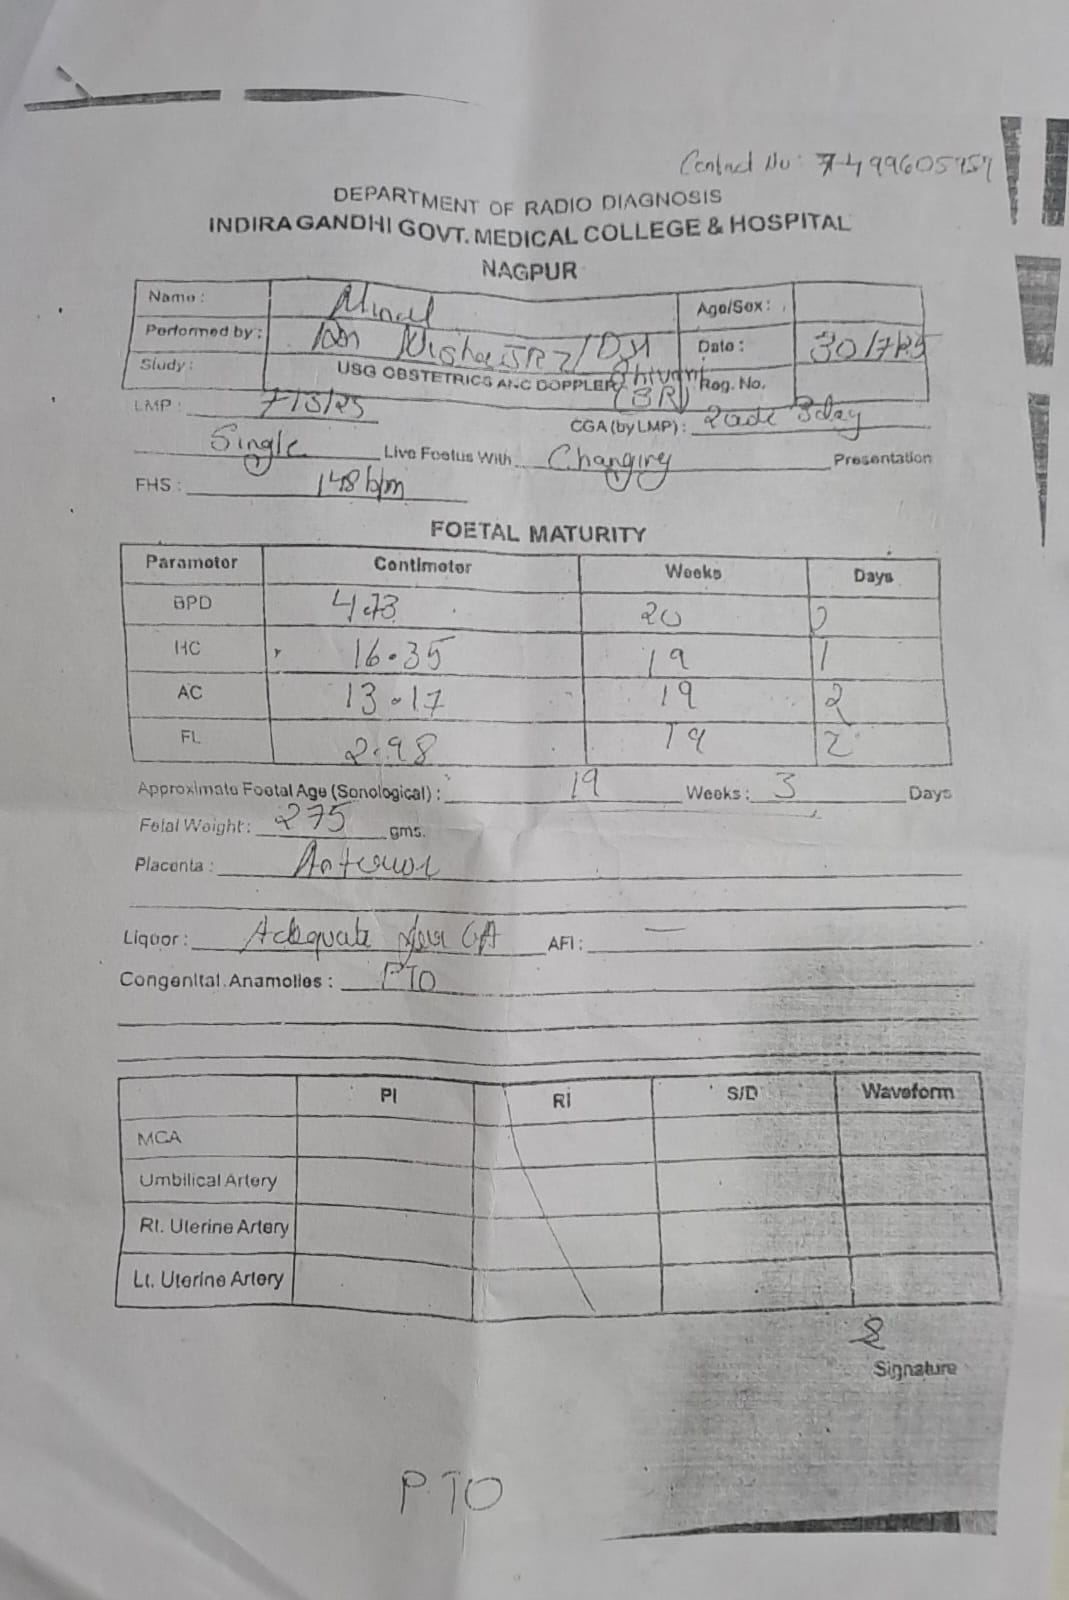 Contact No: 7499605957
DEPARTMENT OF RADIO DIAGNOSIS
INDIRA GANDHI GOVT. MEDICAL COLLEGE & HOSPITAL
NAGPUR
Name : Minal Age/Sex :
Performed by : Date : 30/7/25
Study : USG OBSTETRICS ANC DOPPLER Shivani (SR) Reg. No.
LMP : CGA (by LMP) : 3day
Single Live Foetus With Changing Presentation
FHS : 148 bpm
FOETAL MATURITY
Parameter Centimeter Weeks Days
BPD 4.73 20
HC 16.35 19 1
AC 13.17 19 2
FL 2.98 19 2
Approximate Foetal Age (Sonological) : 19 Weeks : 3 Days
Fetal Weight : 275 gms.
Placenta : Anterior
Liquor : Adequate for GA AFI : —
Congenital Anamolies : PTO
PI RI S/D Waveform
MCA
Umbilical Artery
Rt. Uterine Artery
Lt. Uterine Artery
Signature
P.TO